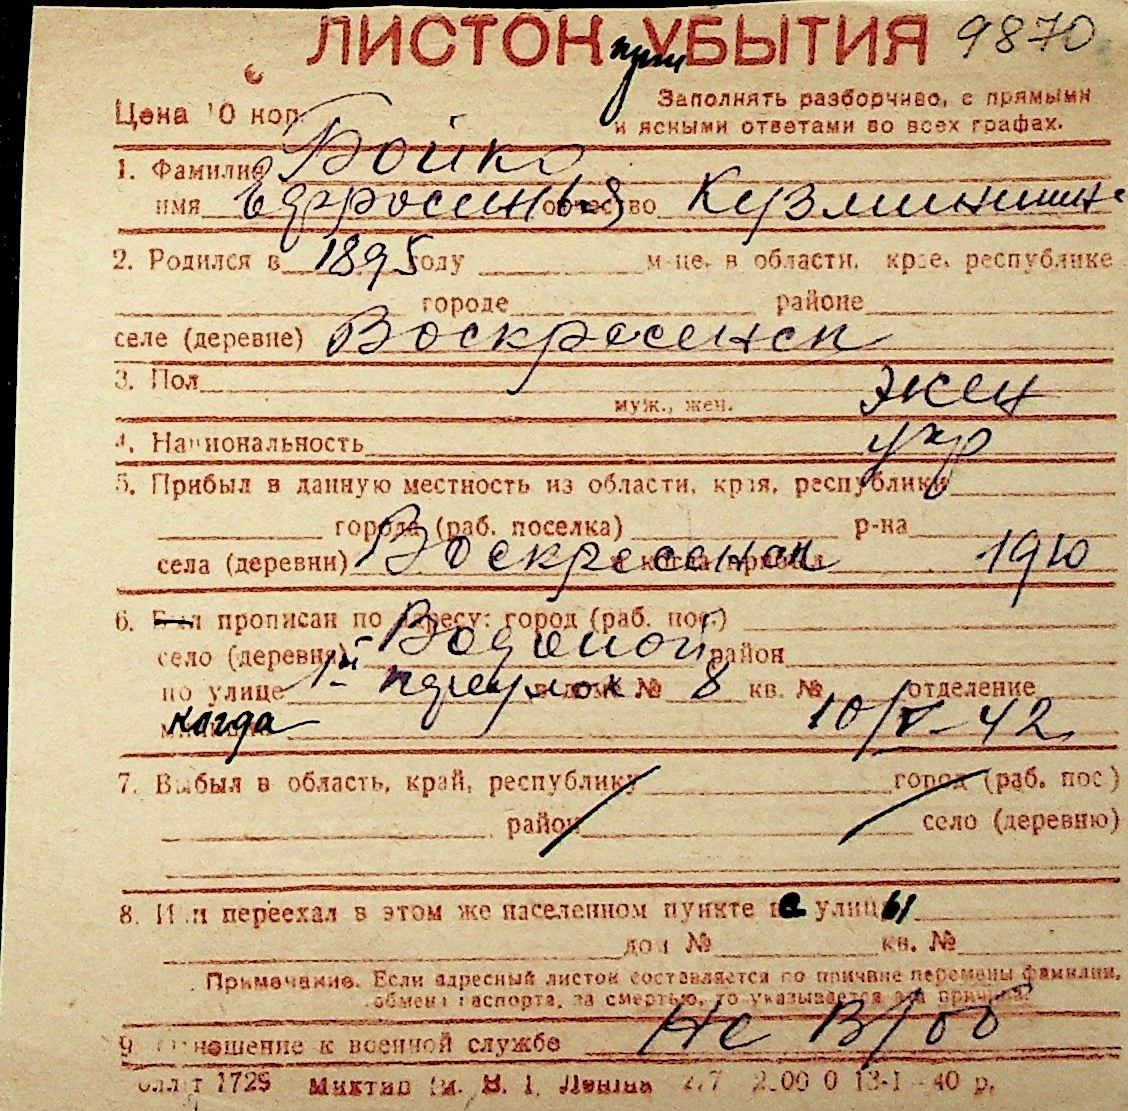 ЛИСТОК при УБЫТИЯ 9870
Цена 10 коп. Заполнять разборчиво, с прямыми
и ясными ответами во всех графах.
1. Фамилия Бойко
имя Ефросинья отчество Кузминишна
2. Родился в 1895 году м-це, в области, крае, республике
городе районе
селе (деревне) Воскресенск
3. Пол жен
муж., жен.
4. Национальность укр
5. Прибыл в данную местность из области, края, республики
города (раб. поселка) р-на
села (деревни) Воскресенск и когда прибыл 1910
6. Был прописан по адресу: город (раб. пос.)
село (деревня) Водяной район
по улице 1-й переулок дом № 8 кв. № отделение
когда 10/V-42
7. Выбыл в область, край, республику город (раб. пос.)
район село (деревню)
8. Или переехал в этом же населенном пункте с улицы
дом № кв. №
Примечание. Если адресный листок составляется по причине перемены фамилии,
обмена паспорта, за смертью, то указывается эта причина.
9. Отношение к военной службе Не в/об
1729 им. В. И. Ленина 13-1-40 р.